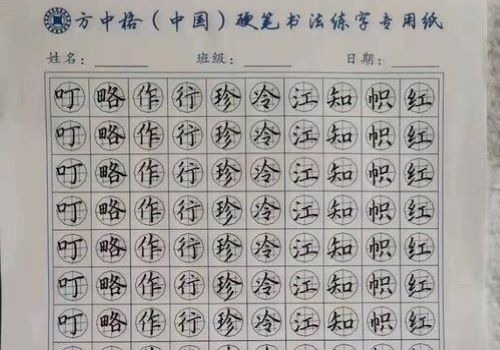 方中格（中国）硬笔书法练字专用纸
姓名：______ 班级：______ 日期：______
叮略作行珍冷江知帜红
叮略作行珍冷江知帜红
叮略作行珍冷江知帜红
叮略作行珍冷江知帜红
叮略作行珍冷江知帜红
叮略作行珍冷江知帜红
叮略作行珍冷江知帜红